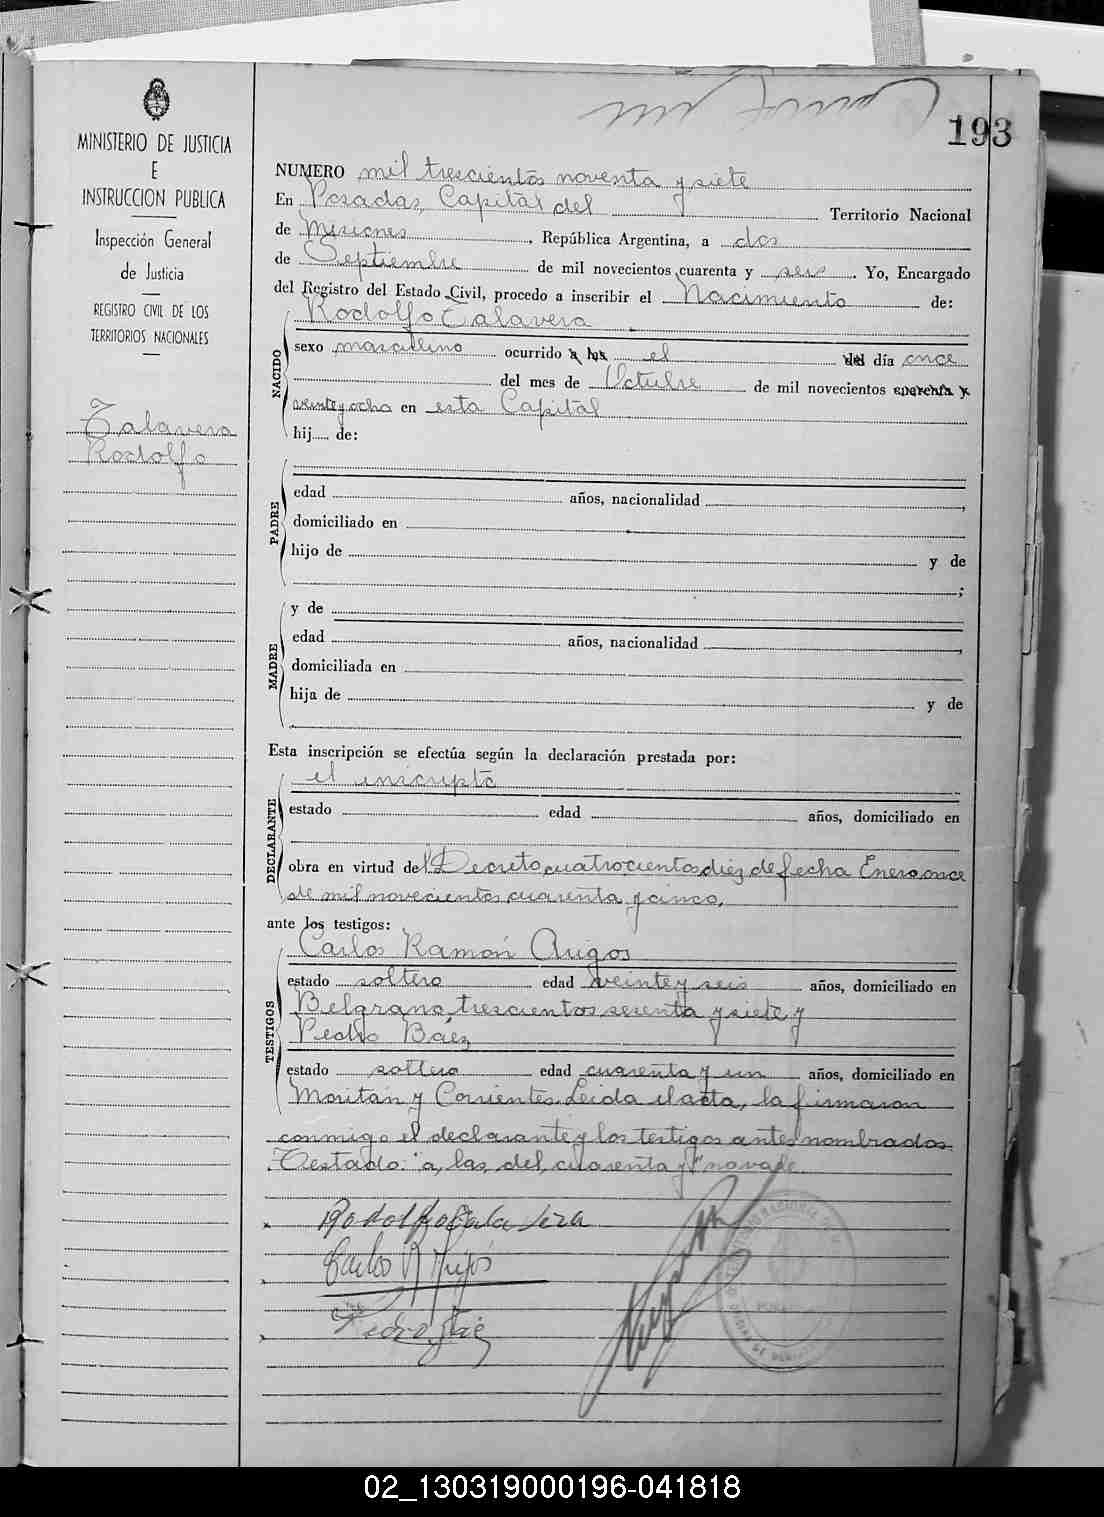 193
MINISTERIO DE JUSTICIA
E
INSTRUCCION PUBLICA
Inspección General
de Justicia
REGISTRO CIVIL DE LOS
TERRITORIOS NACIONALES
Talavera
Rodolfo
NUMERO mil trescientos noventa y siete
En Posadas, Capital del Territorio Nacional
de Misiones, República Argentina, a dos
de Septiembre de mil novecientos cuarenta y seis. Yo, Encargado
del Registro del Estado Civil, procedo a inscribir el Nacimiento de:
NACIDO
Rodolfo Talavera
sexo masculino ocurrido a las el del día once
del mes de Octubre de mil novecientos cuarenta y
veinte y ocho en esta Capital
hij de:
PADRE
edad años, nacionalidad ,
domiciliado en
hijo de y de
;
MADRE
y de
edad años, nacionalidad ,
domiciliada en
hija de y de
Esta inscripción se efectúa según la declaración prestada por:
DECLARANTE
el inscripto
estado edad años, domiciliado en
obra en virtud del Decreto cuatrocientos diez de fecha Enero once
de mil novecientos cuarenta y cinco,
ante los testigos:
TESTIGOS
Carlos Ramón
estado soltero edad veinte y seis años, domiciliado en
Belgrano trescientos sesenta y siete y
Pedro Báez
estado soltero edad cuarenta y un años, domiciliado en
y Corrientes. Leida el acta, la firmaron
conmigo el declarante y los testigos antes nombrados
Testado: "a, las, del, cuarenta y" no vale.
Rodolfo Talavera
Carlos R
Pedro Báez
02_130319000196-041818